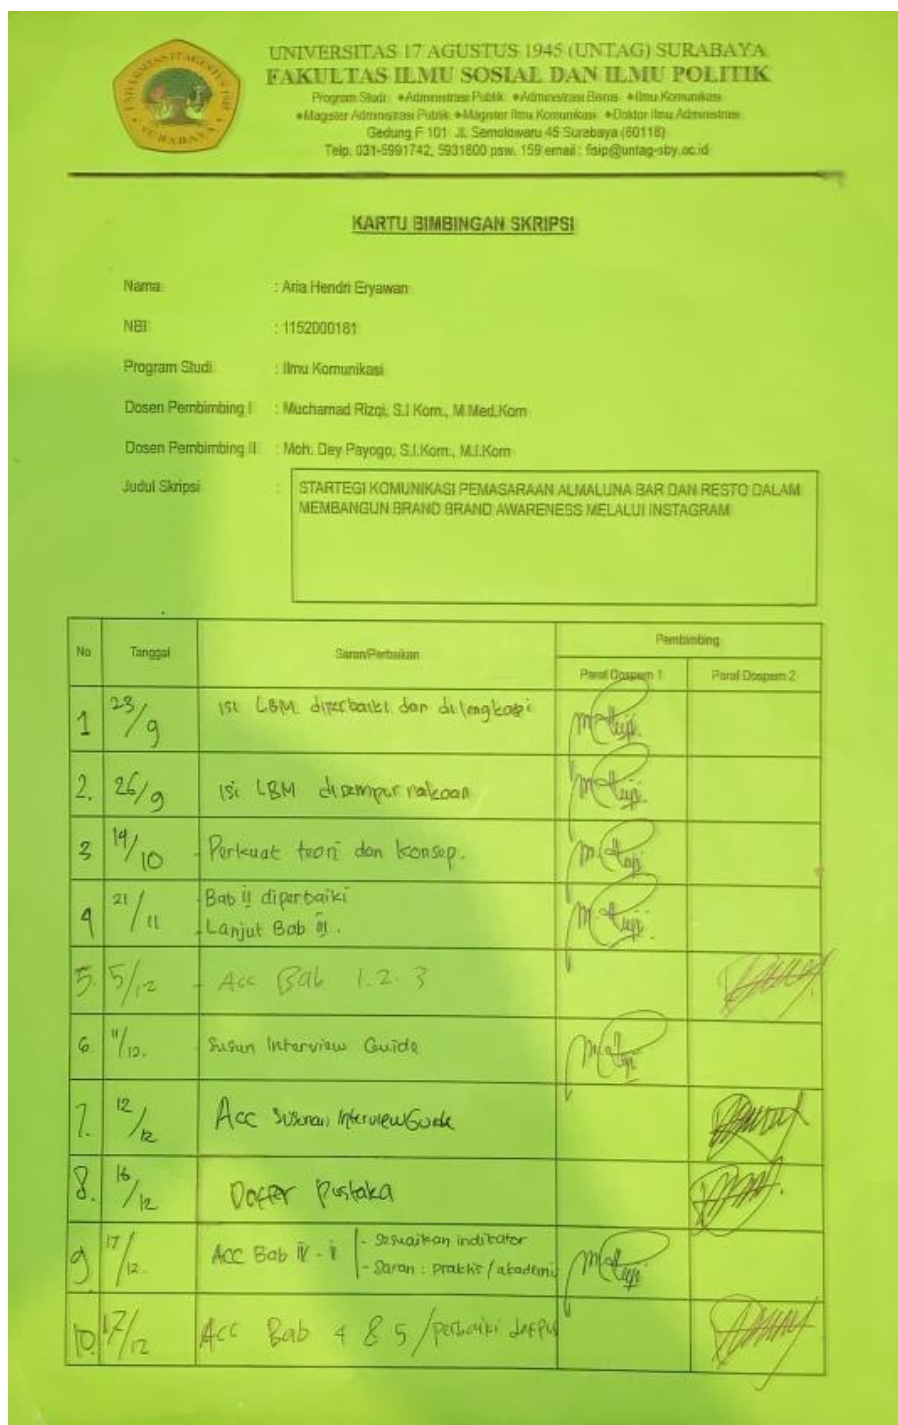 UNIVERSITAS 17 AGUSTUS 1945 (UNTAG) SURABAYA
FAKULTAS ILMU SOSIAL DAN ILMU POLITIK
Program Studi: Administrasi Publik Administrasi Bisnis Ilmu Komunikasi
Magister Administrasi Publik Magister Ilmu Komunikasi Doktor Ilmu Administrasi
Gedung F 101 Jl. Semolowaru 45 Surabaya (60118)
Telp. 031-5991742, 5931800 psw. 159 email : fisip@untag-sby.ac.id
KARTU BIMBINGAN SKRIPSI
Nama : Aria Hendri Eryawan
NBI : 1152000181
Program Studi : Ilmu Komunikasi
Dosen Pembimbing I : Muchamad Rizqi, S.I Kom., M.Med.Kom
Dosen Pembimbing II : Moh. Dey Payogo, S.I.Kom., M.I.Kom
Judul Skripsi : STARTEGI KOMUNIKASI PEMASARAAN ALMALUNA BAR DAN RESTO DALAM
MEMBANGUN BRAND BRAND AWARENESS MELALUI INSTAGRAM
No Tanggal Saran/Perbaikan Pembimbing
Paraf Dospem 1 Paraf Dospem 2
1 23/9 isi LBM diperbaiki dan dilengkapi
2. 26/9 isi LBM disempurnakaan
3 14/10 - Perkuat teori dan konsep.
4 21/11 - Bab ii diperbaiki
- Lanjut Bab iii.
5. 5/12 - Acc Bab 1. 2. 3
6. 11/12. Susun Interview Guide
7. 12/12 Acc susunan Interview Guide
8. 16/12 Daftar Pustaka
9 17/12. Acc Bab IV - V - Sesuaikan indikator
- Saran : praktis / akademi
10. 17/12 Acc Bab 4 & 5 / perbaiki dafpus